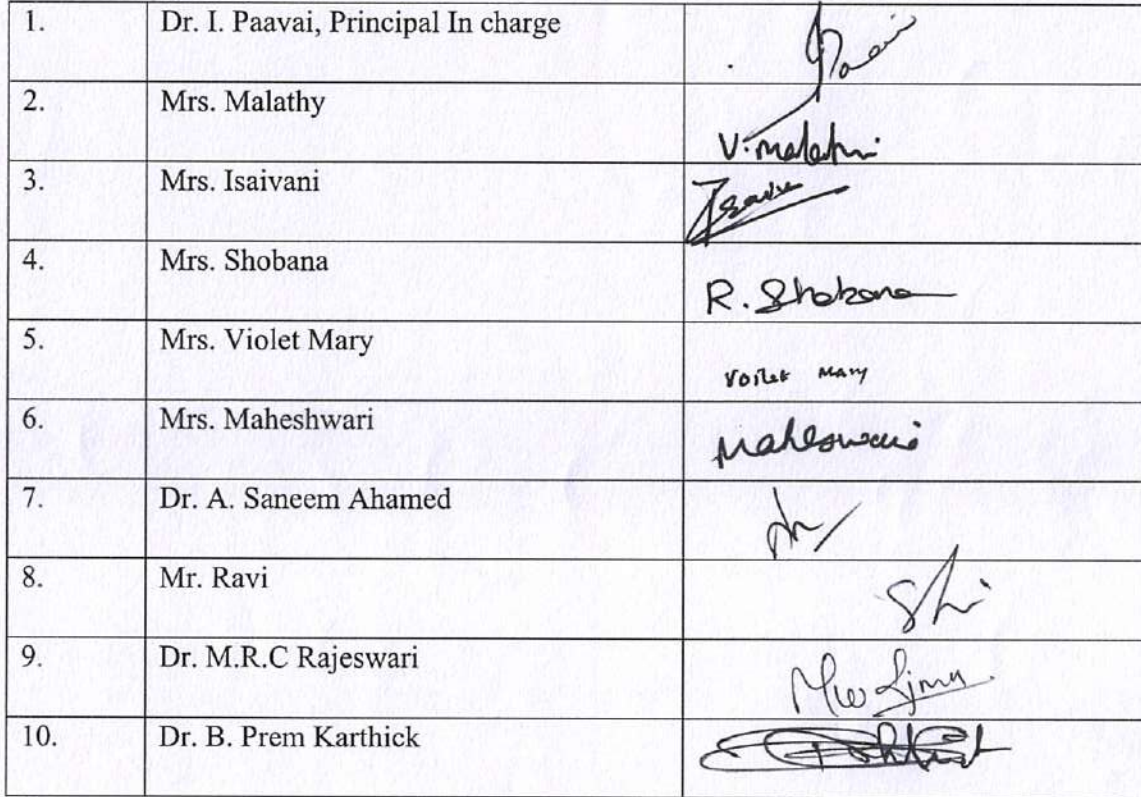 1. Dr. I. Paavai, Principal In charge
2. Mrs. Malathy V. Malathi
3. Mrs. Isaivani
4. Mrs. Shobana R. Shobana
5. Mrs. Violet Mary Voilet Mary
6. Mrs. Maheshwari Maheswari
7. Dr. A. Saneem Ahamed
8. Mr. Ravi
9. Dr. M.R.C Rajeswari
10. Dr. B. Prem Karthick